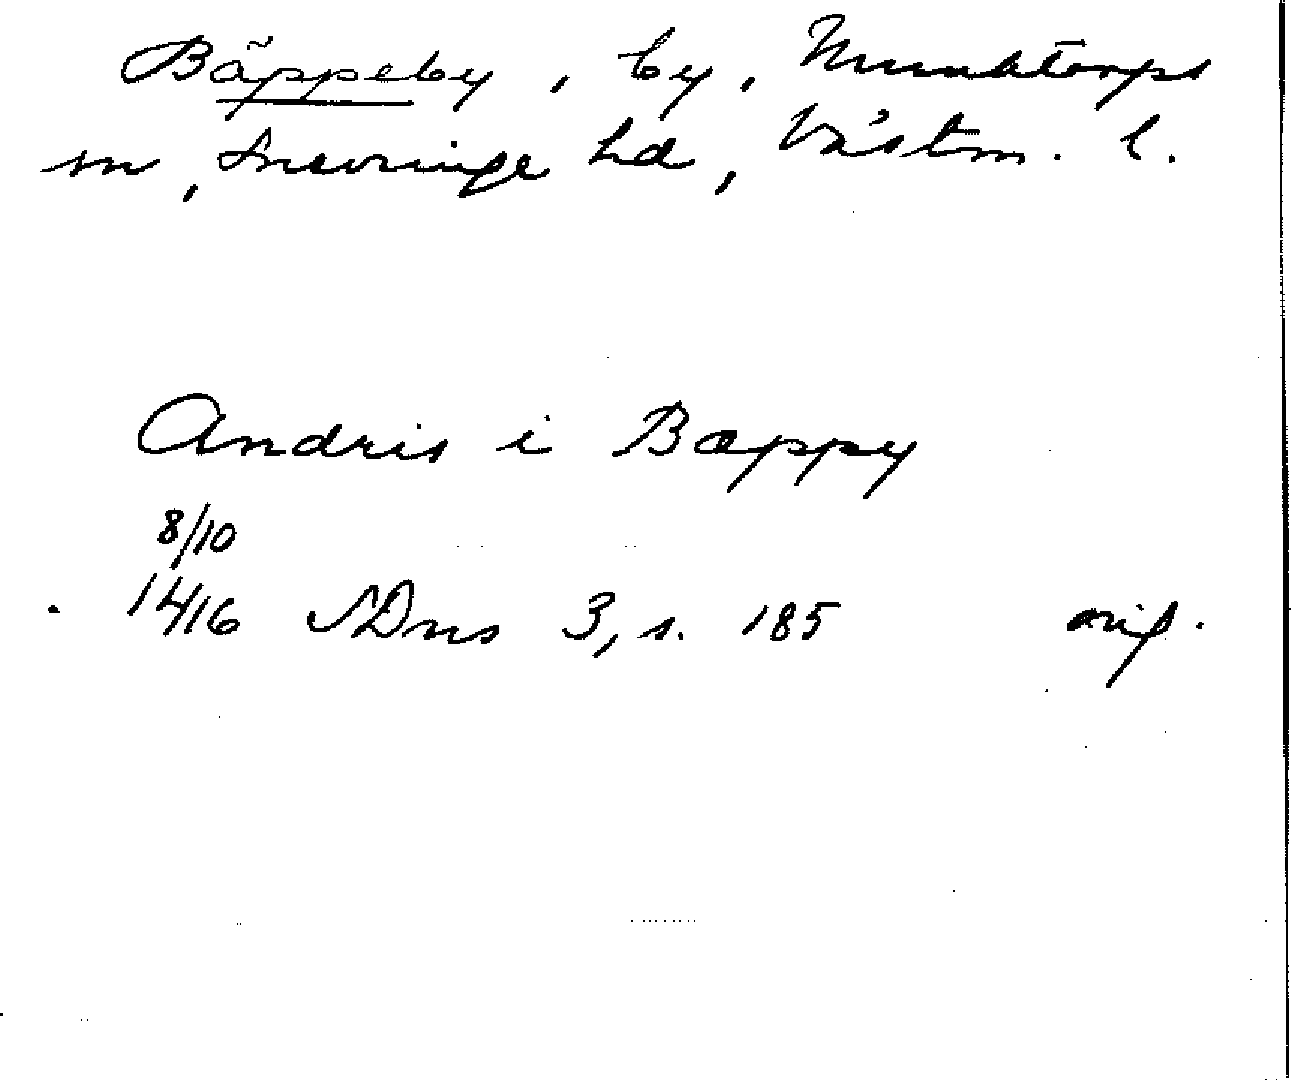 Bäppeby, by, Munktorps
sn, Snevringe hd, Västm. l.
Andris i Bæppy
8/10
1416 SDns 3, s. 185 orig.